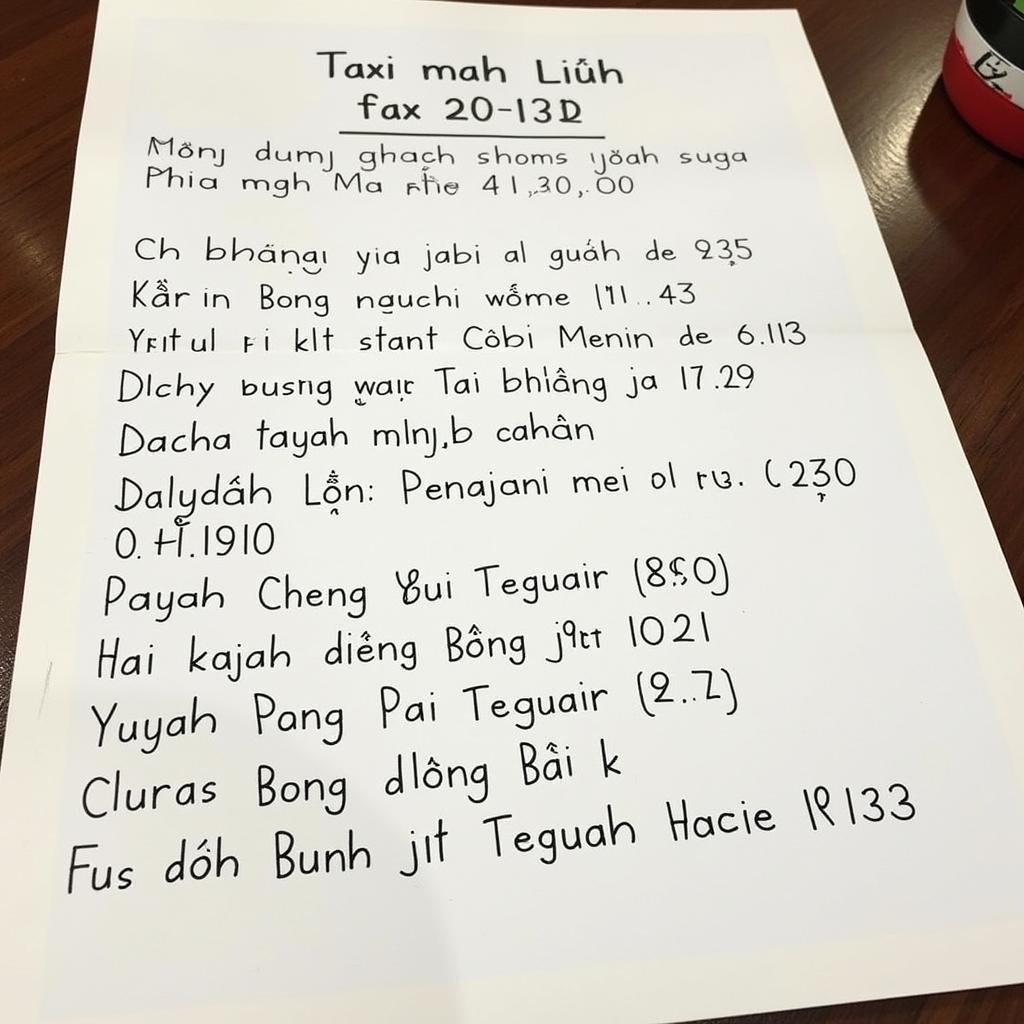 Taxi mah Liûh
fax 20-13D
Mönj dumj ghach shoms yöah suga
Phia mgh Ma 41,30,.00
Ch bhäng yia jabi al guáh de 235
in Bong nguchi wome 1711..43
ul klt stant Côbi Menin de 6.113
Dlchy busng Tai bhiâng ja 17.29
Dacha tayah mlnj,b cahân
Dalydâh Lôn: Penajani mei ol (230
0. 1910
Payah Cheng Teguair
Hai kajah diêng Bông 1021
Yuyah Pang Pai Teguair (2..7)
Cluras Bong dlông Bâi k
Fus dóh Bunh jit Teguah Hacie 133